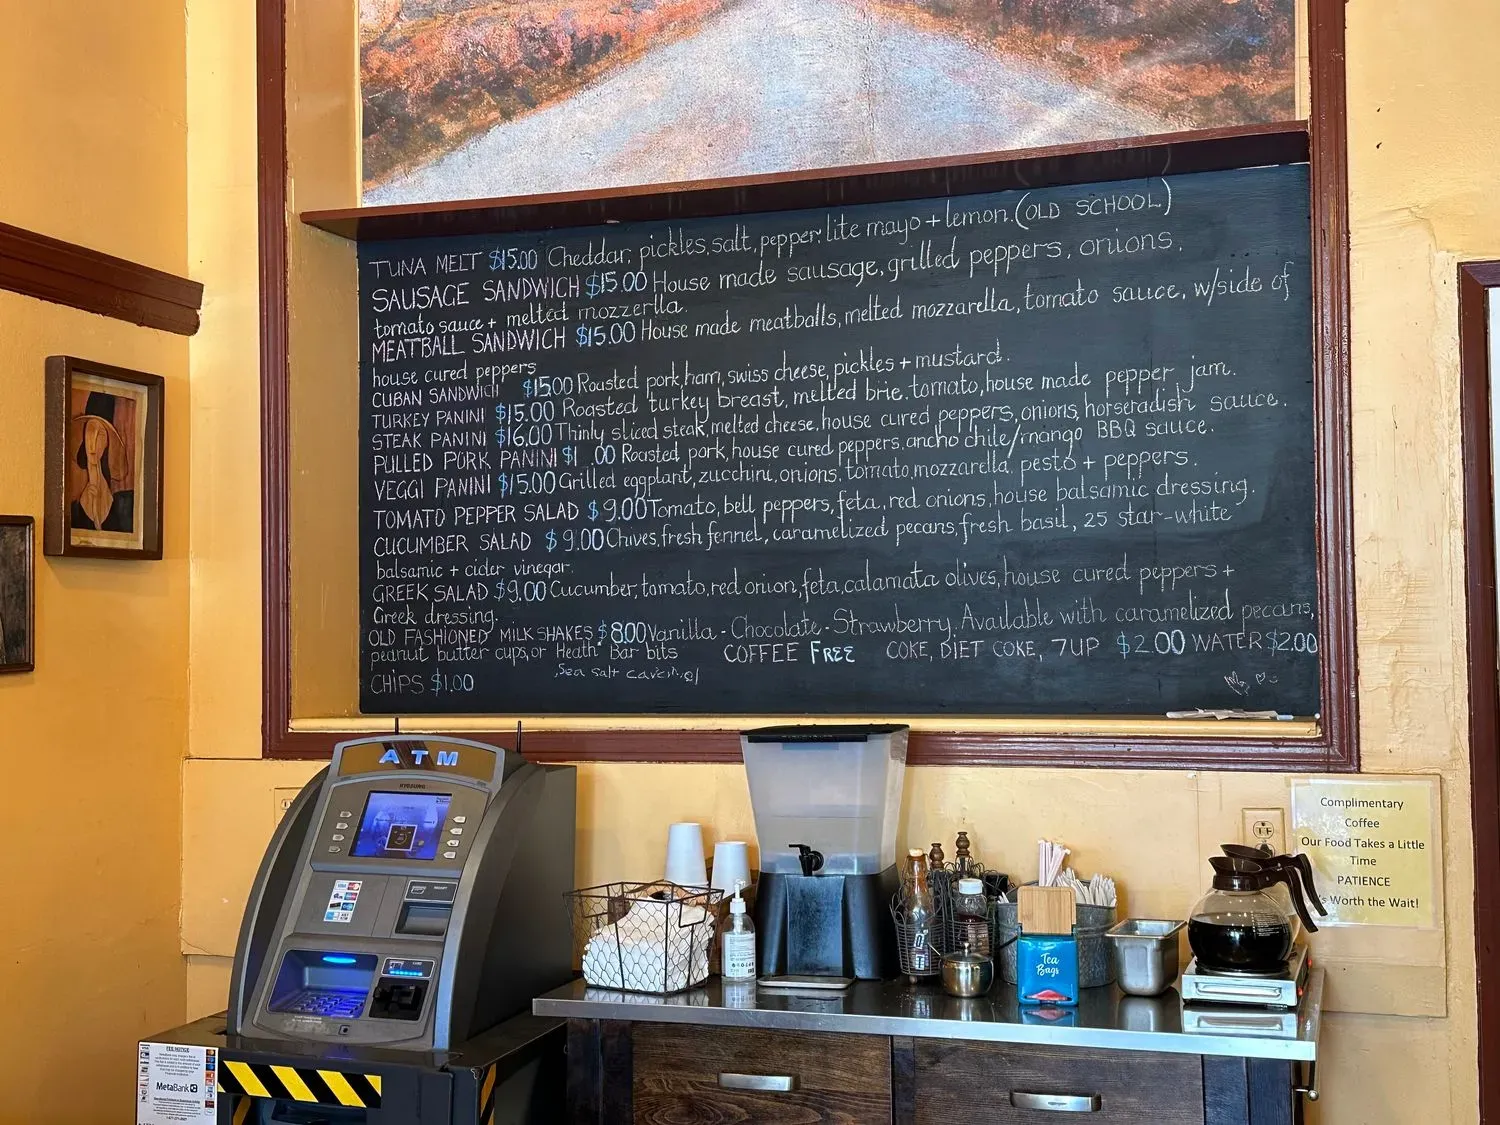 TUNA MELT $15.00 Cheddar, pickles, salt, pepper, lite mayo + lemon. (OLD SCHOOL)
SAUSAGE SANDWICH $15.00 House made sausage, grilled peppers, onions,
tomato sauce + melted mozzerlla.
MEATBALL SANDWICH $15.00 House made meatballs, melted mozzarella, tomato sauce, w/side of
house cured peppers
CUBAN SANDWICH $15.00 Roasted pork, ham, swiss cheese, pickles + mustard.
TURKEY PANINI $15.00 Roasted turkey breast, melted brie, tomato, house made pepper jam.
STEAK PANINI $16.00 Thinly sliced steak, melted cheese, house cured peppers, onions, horseradish sauce.
PULLED PORK PANINI $1 .00 Roasted pork, house cured peppers, ancho chile/mango BBQ sauce.
VEGGI PANINI $15.00 Grilled eggplant, zucchini, onions, tomato, mozzarella, pesto + peppers.
TOMATO PEPPER SALAD $9.00 Tomato, bell peppers, feta, red onions, house balsamic dressing.
CUCUMBER SALAD $9.00 Chives, fresh fennel, caramelized pecans, fresh basil, 25 star-white
balsamic + cider vinegar.
GREEK SALAD $9.00 Cucumber, tomato, red onion, feta, calamata olives, house cured peppers +
Greek dressing.
OLD FASHIONED MILKSHAKES $8.00 Vanilla - Chocolate - Strawberry. Available with caramelized pecans,
peanut butter cups, or "Heath" Bar bits COFFEE FREE COKE, DIET COKE, 7UP $2.00 WATER $2.00
Sea salt
CHIPS $1.00
ATM
HYOSUNG
Tea
Bags
Complimentary
Coffee
Our Food Takes a Little
Time
PATIENCE
Worth the Wait!
FEE NOTICE
MetaBank